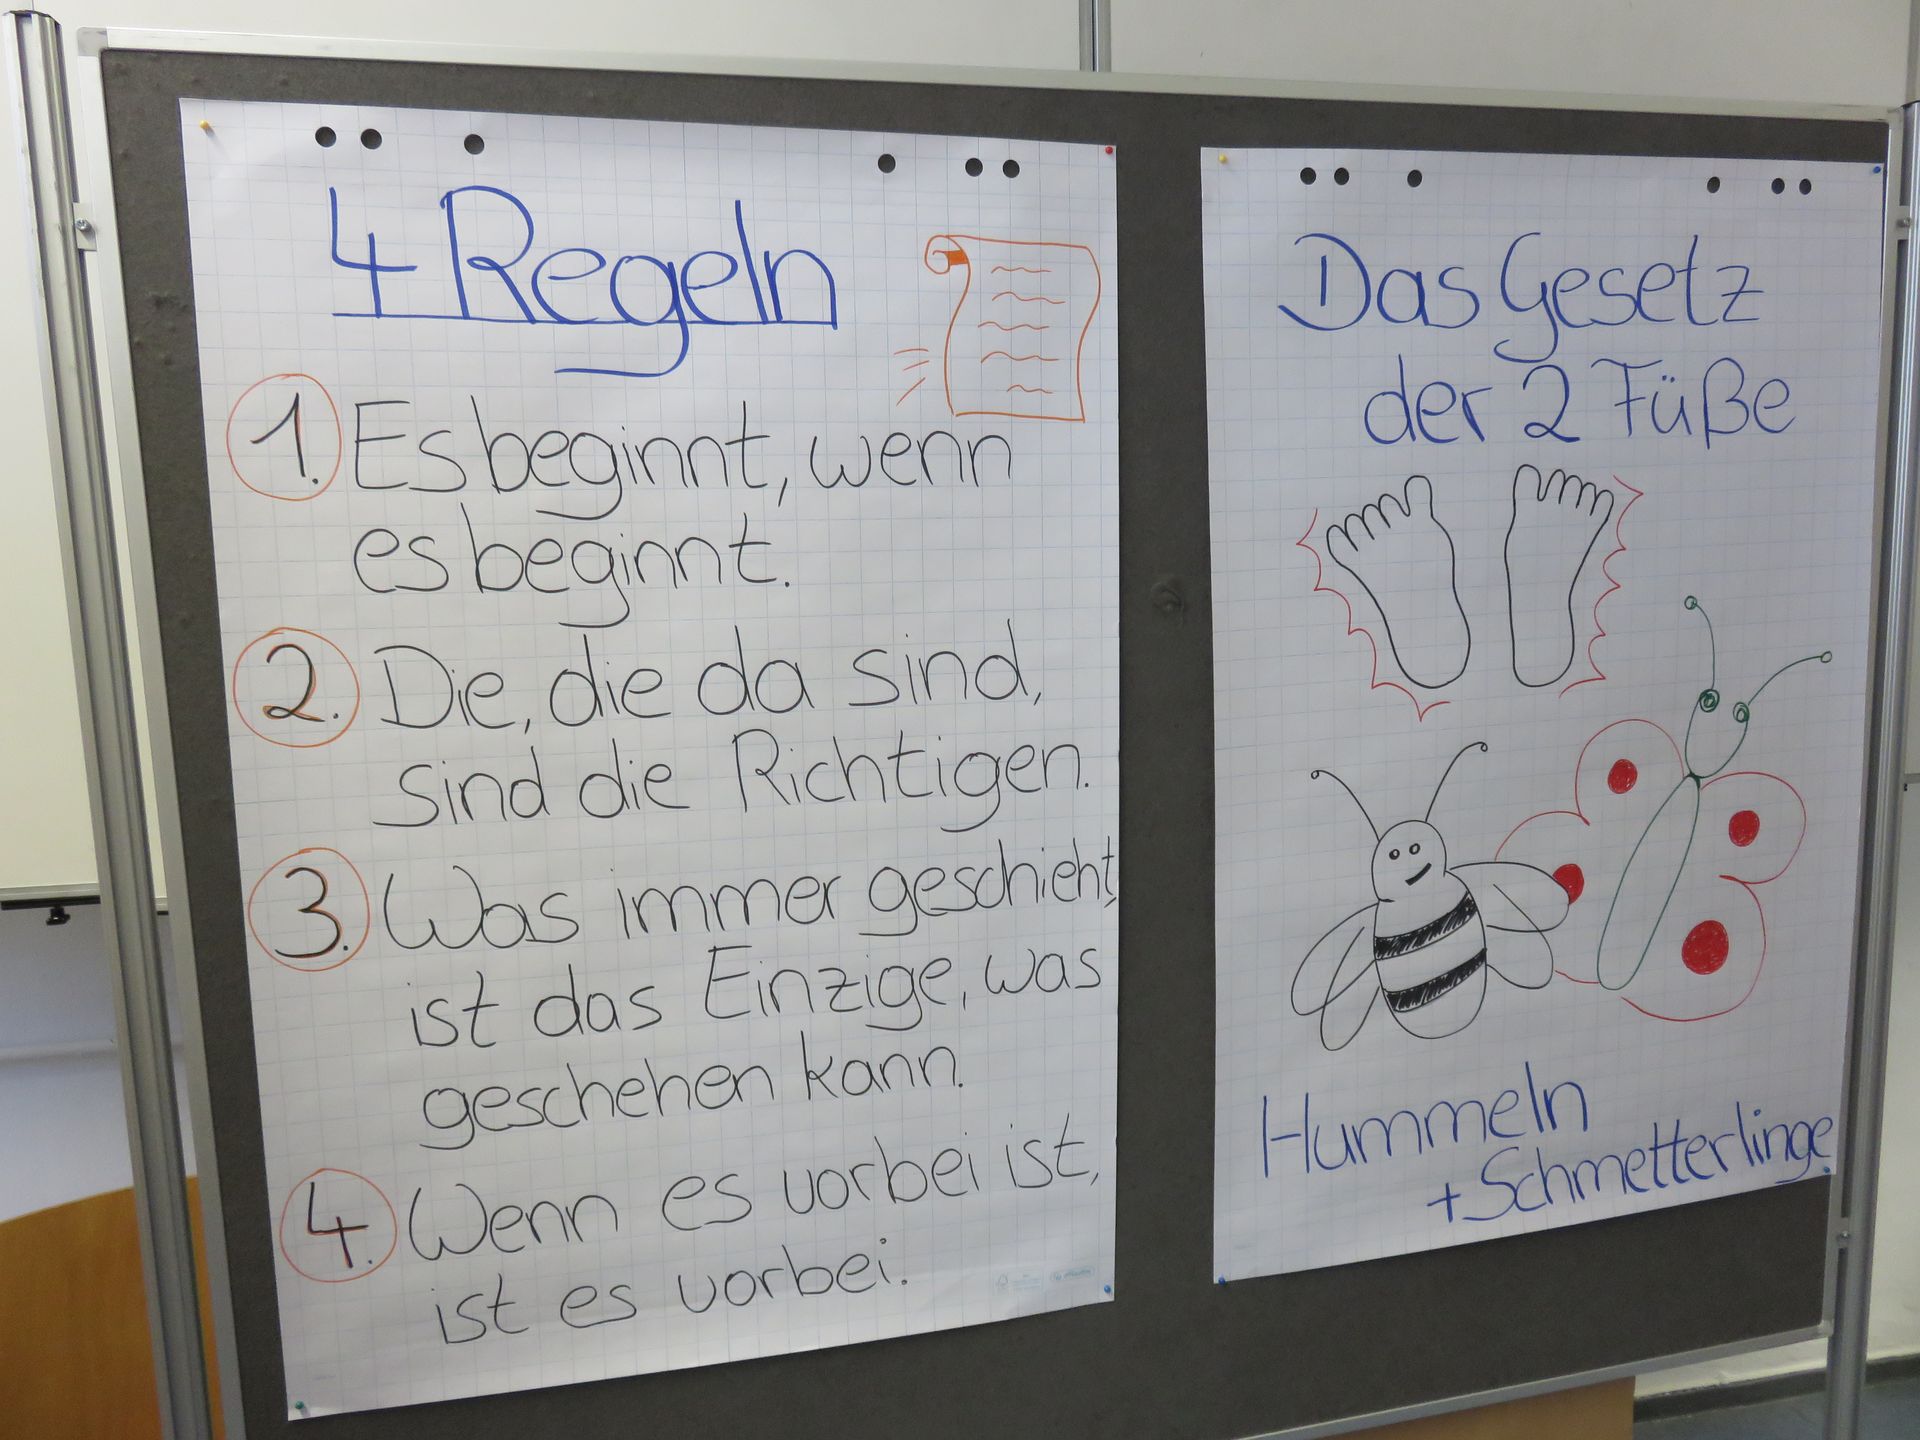 4 Regeln
1. Es beginnt, wenn
es beginnt.
2. Die, die da sind,
sind die Richtigen.
3. Was immer geschieht,
ist das Einzige, was
geschehen kann.
4. Wenn es vorbei ist,
ist es vorbei.
Das Gesetz
der 2 Füße
Hummeln
+ Schmetterlinge